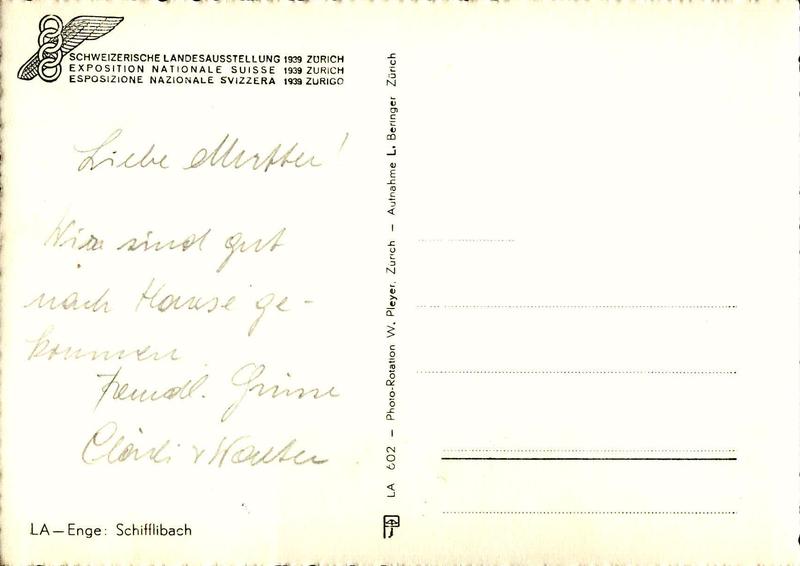 SCHWEIZERISCHE LANDESAUSSTELLUNG 1939 ZÜRICH
EXPOSITION NATIONALE SUISSE 1939 ZURICH
ESPOSIZIONE NAZIONALE SVIZZERA 1939 ZURIGO
Liebe Mutter!
Wir sind gut
nach Hause ge-
kommen
Freundl. Grüsse
& Walter
LA—Enge: Schifflibach
LA 602 — Photo-Rotation W. Pleyer, Zürich — Aufnahme L. Beringer Zürich